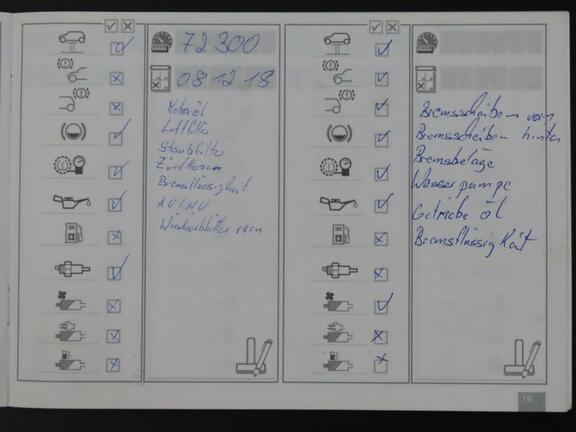 72300
08 12 18
Motoröl
Luftfilter
Staubfilter
Zündkerzen
Bremsflüssigkeit
AU/HU
Wischerblätter vorn
Bremsscheiben vorn
Bremsscheiben hinten
Bremsbeläge
Wasserpumpe
Getriebe öl
Bremsflüssigkeit
19